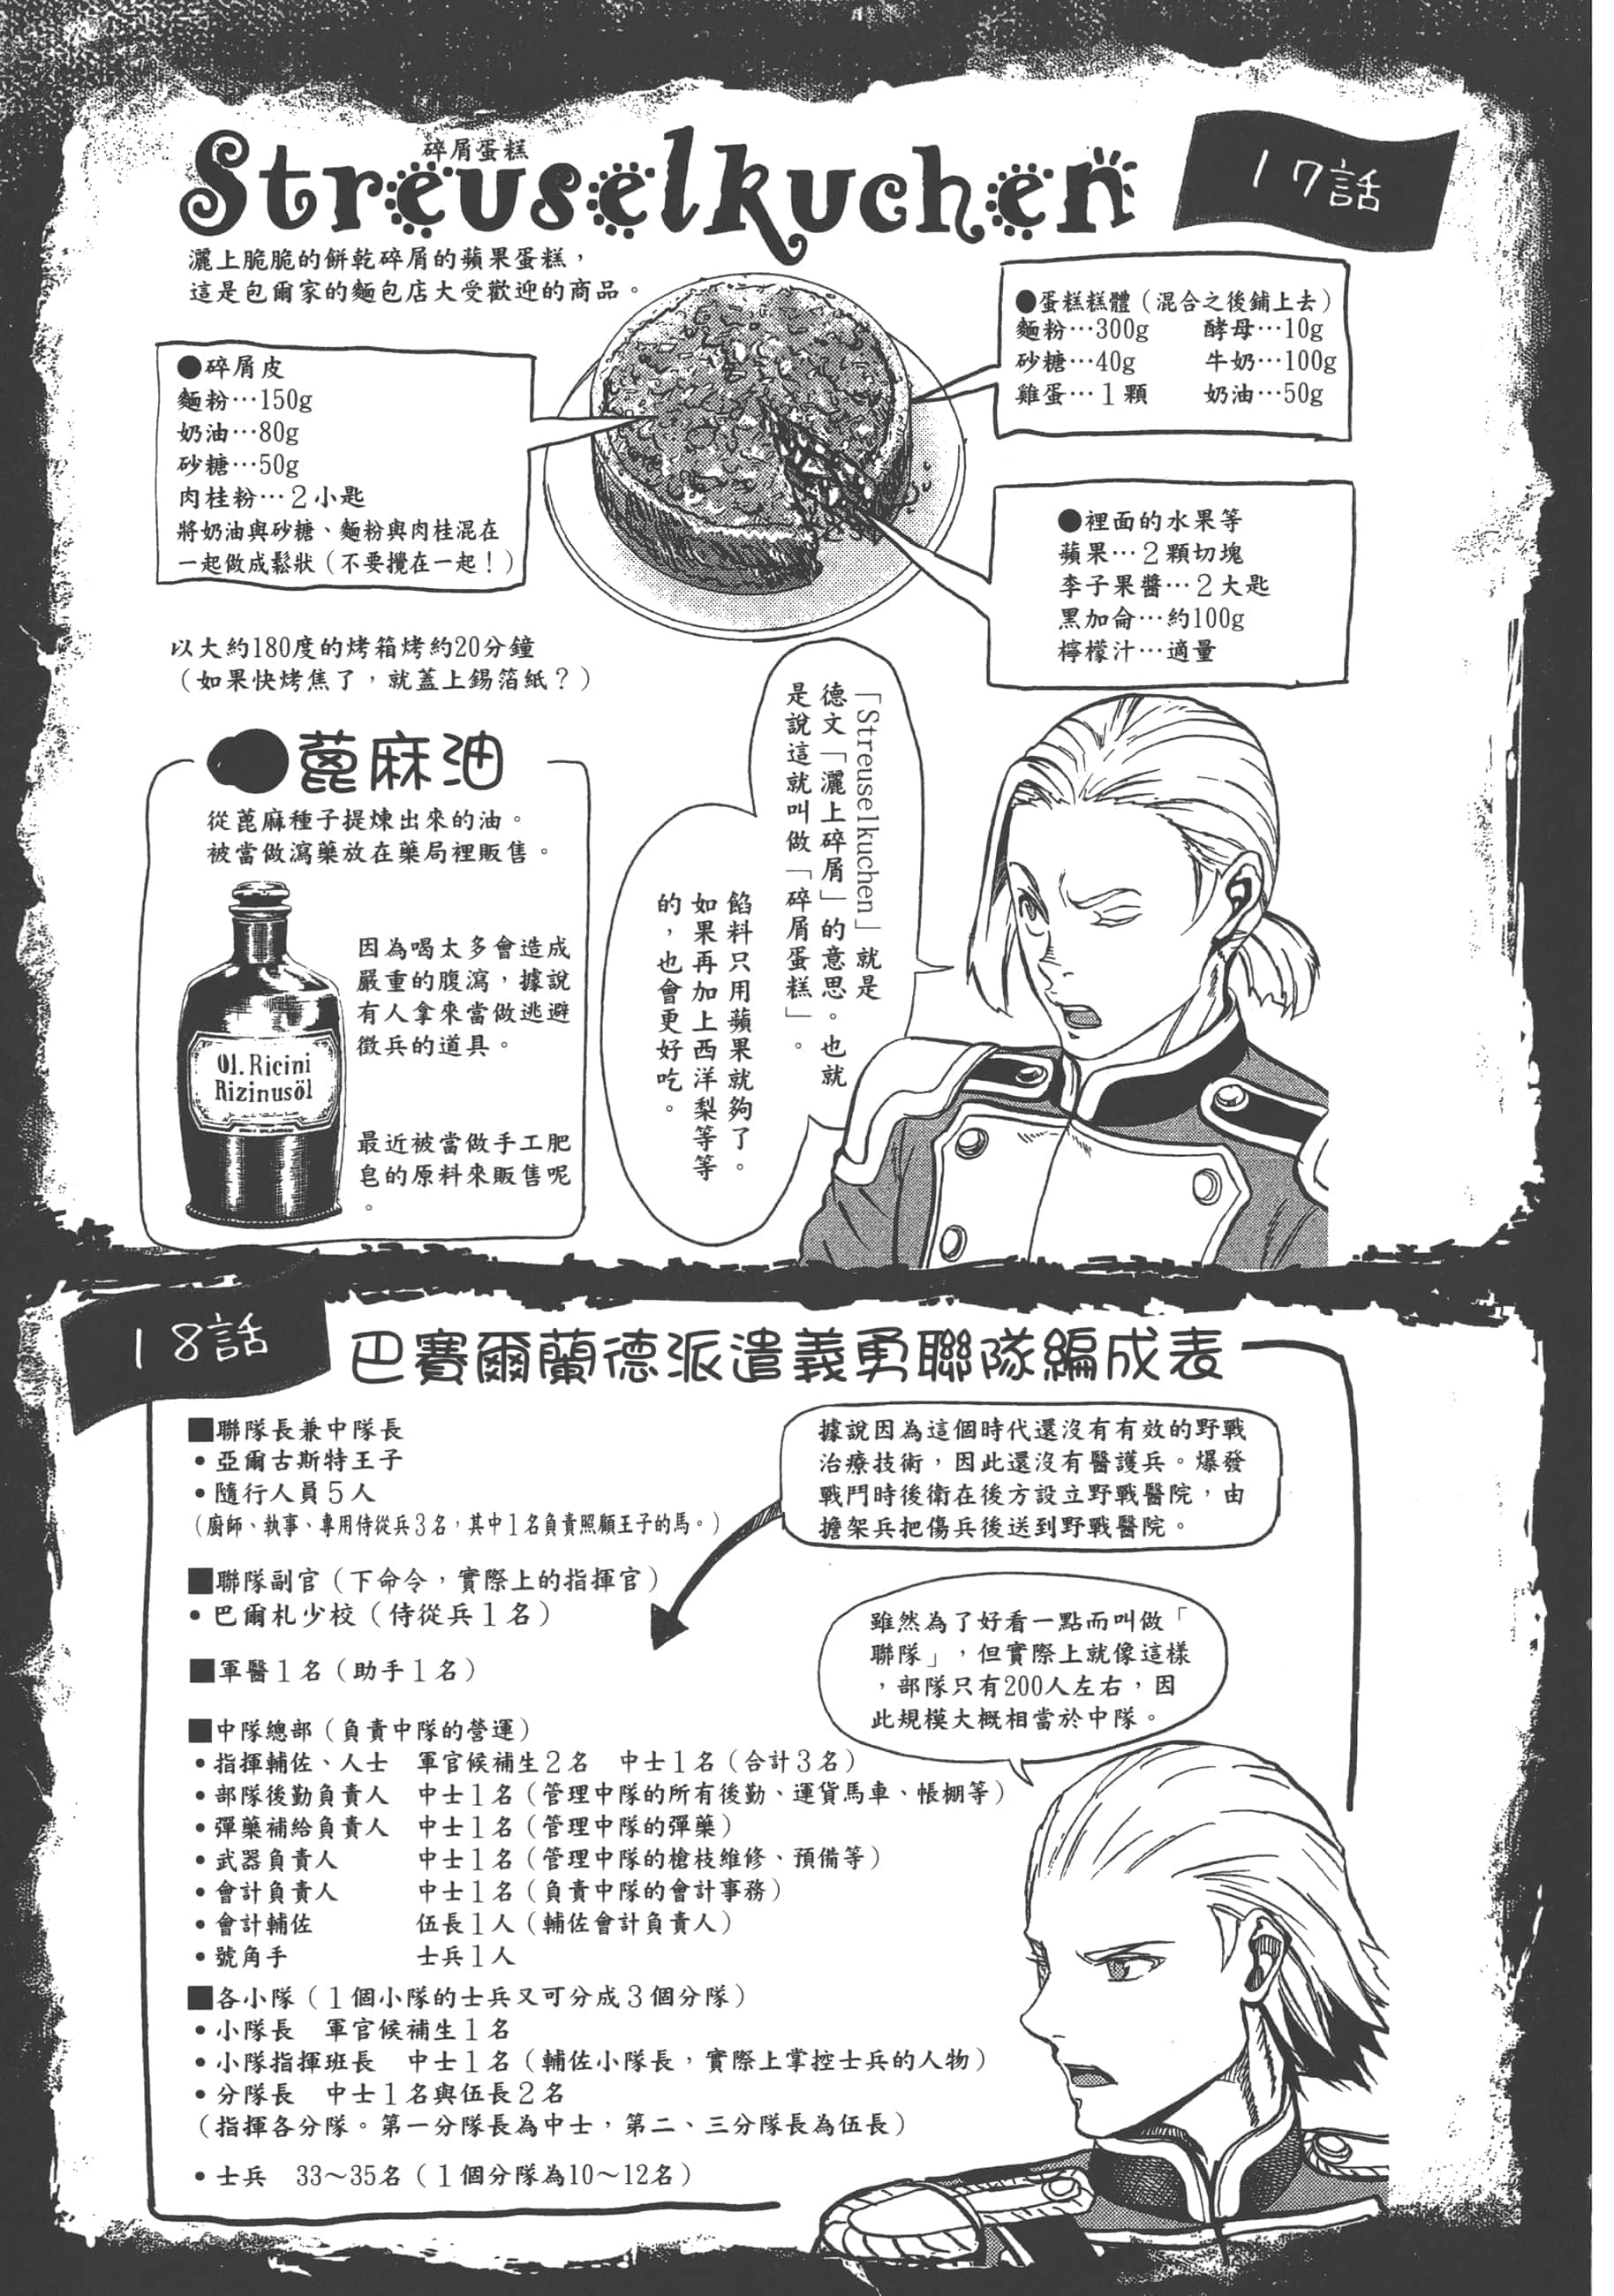 17話
碎屑蛋糕
Streuselkuchen
灑上脆脆的餅乾碎屑的蘋果蛋糕，
這是包爾家的麵包店大受歡迎的商品。
●蛋糕糕體（混合之後鋪上去）
麵粉…300g　酵母…10g
砂糖…40g　牛奶…100g
雞蛋…1顆　奶油…50g
●碎屑皮
麵粉…150g
奶油…80g
砂糖…50g
肉桂粉…2小匙
將奶油與砂糖、麵粉與肉桂混在
一起做成鬆狀（不要攪在一起！）
●裡面的水果等
蘋果…2顆切塊
李子果醬…2大匙
黑加侖…約100g
檸檬汁…適量
以大約180度的烤箱烤約20分鐘
（如果快烤焦了，就蓋上錫箔紙？）
「Streuselkuchen」就是
德文「灑上碎屑」的意思。也就
是說這就叫做「碎屑蛋糕」。
餡料只用蘋果就夠了。
如果再加上西洋梨等等
的，也會更好吃。
●蓖麻油
從蓖麻種子提煉出來的油。
被當做瀉藥放在藥局裡販售。
因為喝太多會造成
嚴重的腹瀉，據說
有人拿來當做逃避
徵兵的道具。
Ol.Ricini
Rizinusöl
最近被當做手工肥
皂的原料來販售呢
。
18話
巴賽爾蘭德派遣義勇聯隊編成表
■聯隊長兼中隊長
•亞爾古斯特王子
•隨行人員5人
（廚師、執事、專用侍從兵3名，其中1名負責照顧王子的馬。）
據說因為這個時代還沒有有效的野戰
治療技術，因此還沒有醫護兵。爆發
戰鬥時後衛在後方設立野戰醫院，由
擔架兵把傷兵後送到野戰醫院。
■聯隊副官（下命令，實際上的指揮官）
•巴爾札少校（侍從兵1名）
■軍醫1名（助手1名）
雖然為了好看一點而叫做「
聯隊」，但實際上就像這樣
，部隊只有200人左右，因
此規模大概相當於中隊。
■中隊總部（負責中隊的營運）
•指揮輔佐、人士　軍官候補生2名　中士1名（合計3名）
•部隊後勤負責人　中士1名（管理中隊的所有後勤、運貨馬車、帳棚等）
•彈藥補給負責人　中士1名（管理中隊的彈藥）
•武器負責人　中士1名（管理中隊的槍枝維修、預備等）
•會計負責人　中士1名（負責中隊的會計事務）
•會計輔佐　伍長1人（輔佐會計負責人）
•號角手　士兵1人
■各小隊（1個小隊的士兵又可分成3個分隊）
•小隊長　軍官候補生1名
•小隊指揮班長　中士1名（輔佐小隊長，實際上掌控士兵的人物）
•分隊長　中士1名與伍長2名
（指揮各分隊。第一分隊長為中士，第二、三分隊長為伍長）
•士兵　33～35名（1個分隊為10～12名）